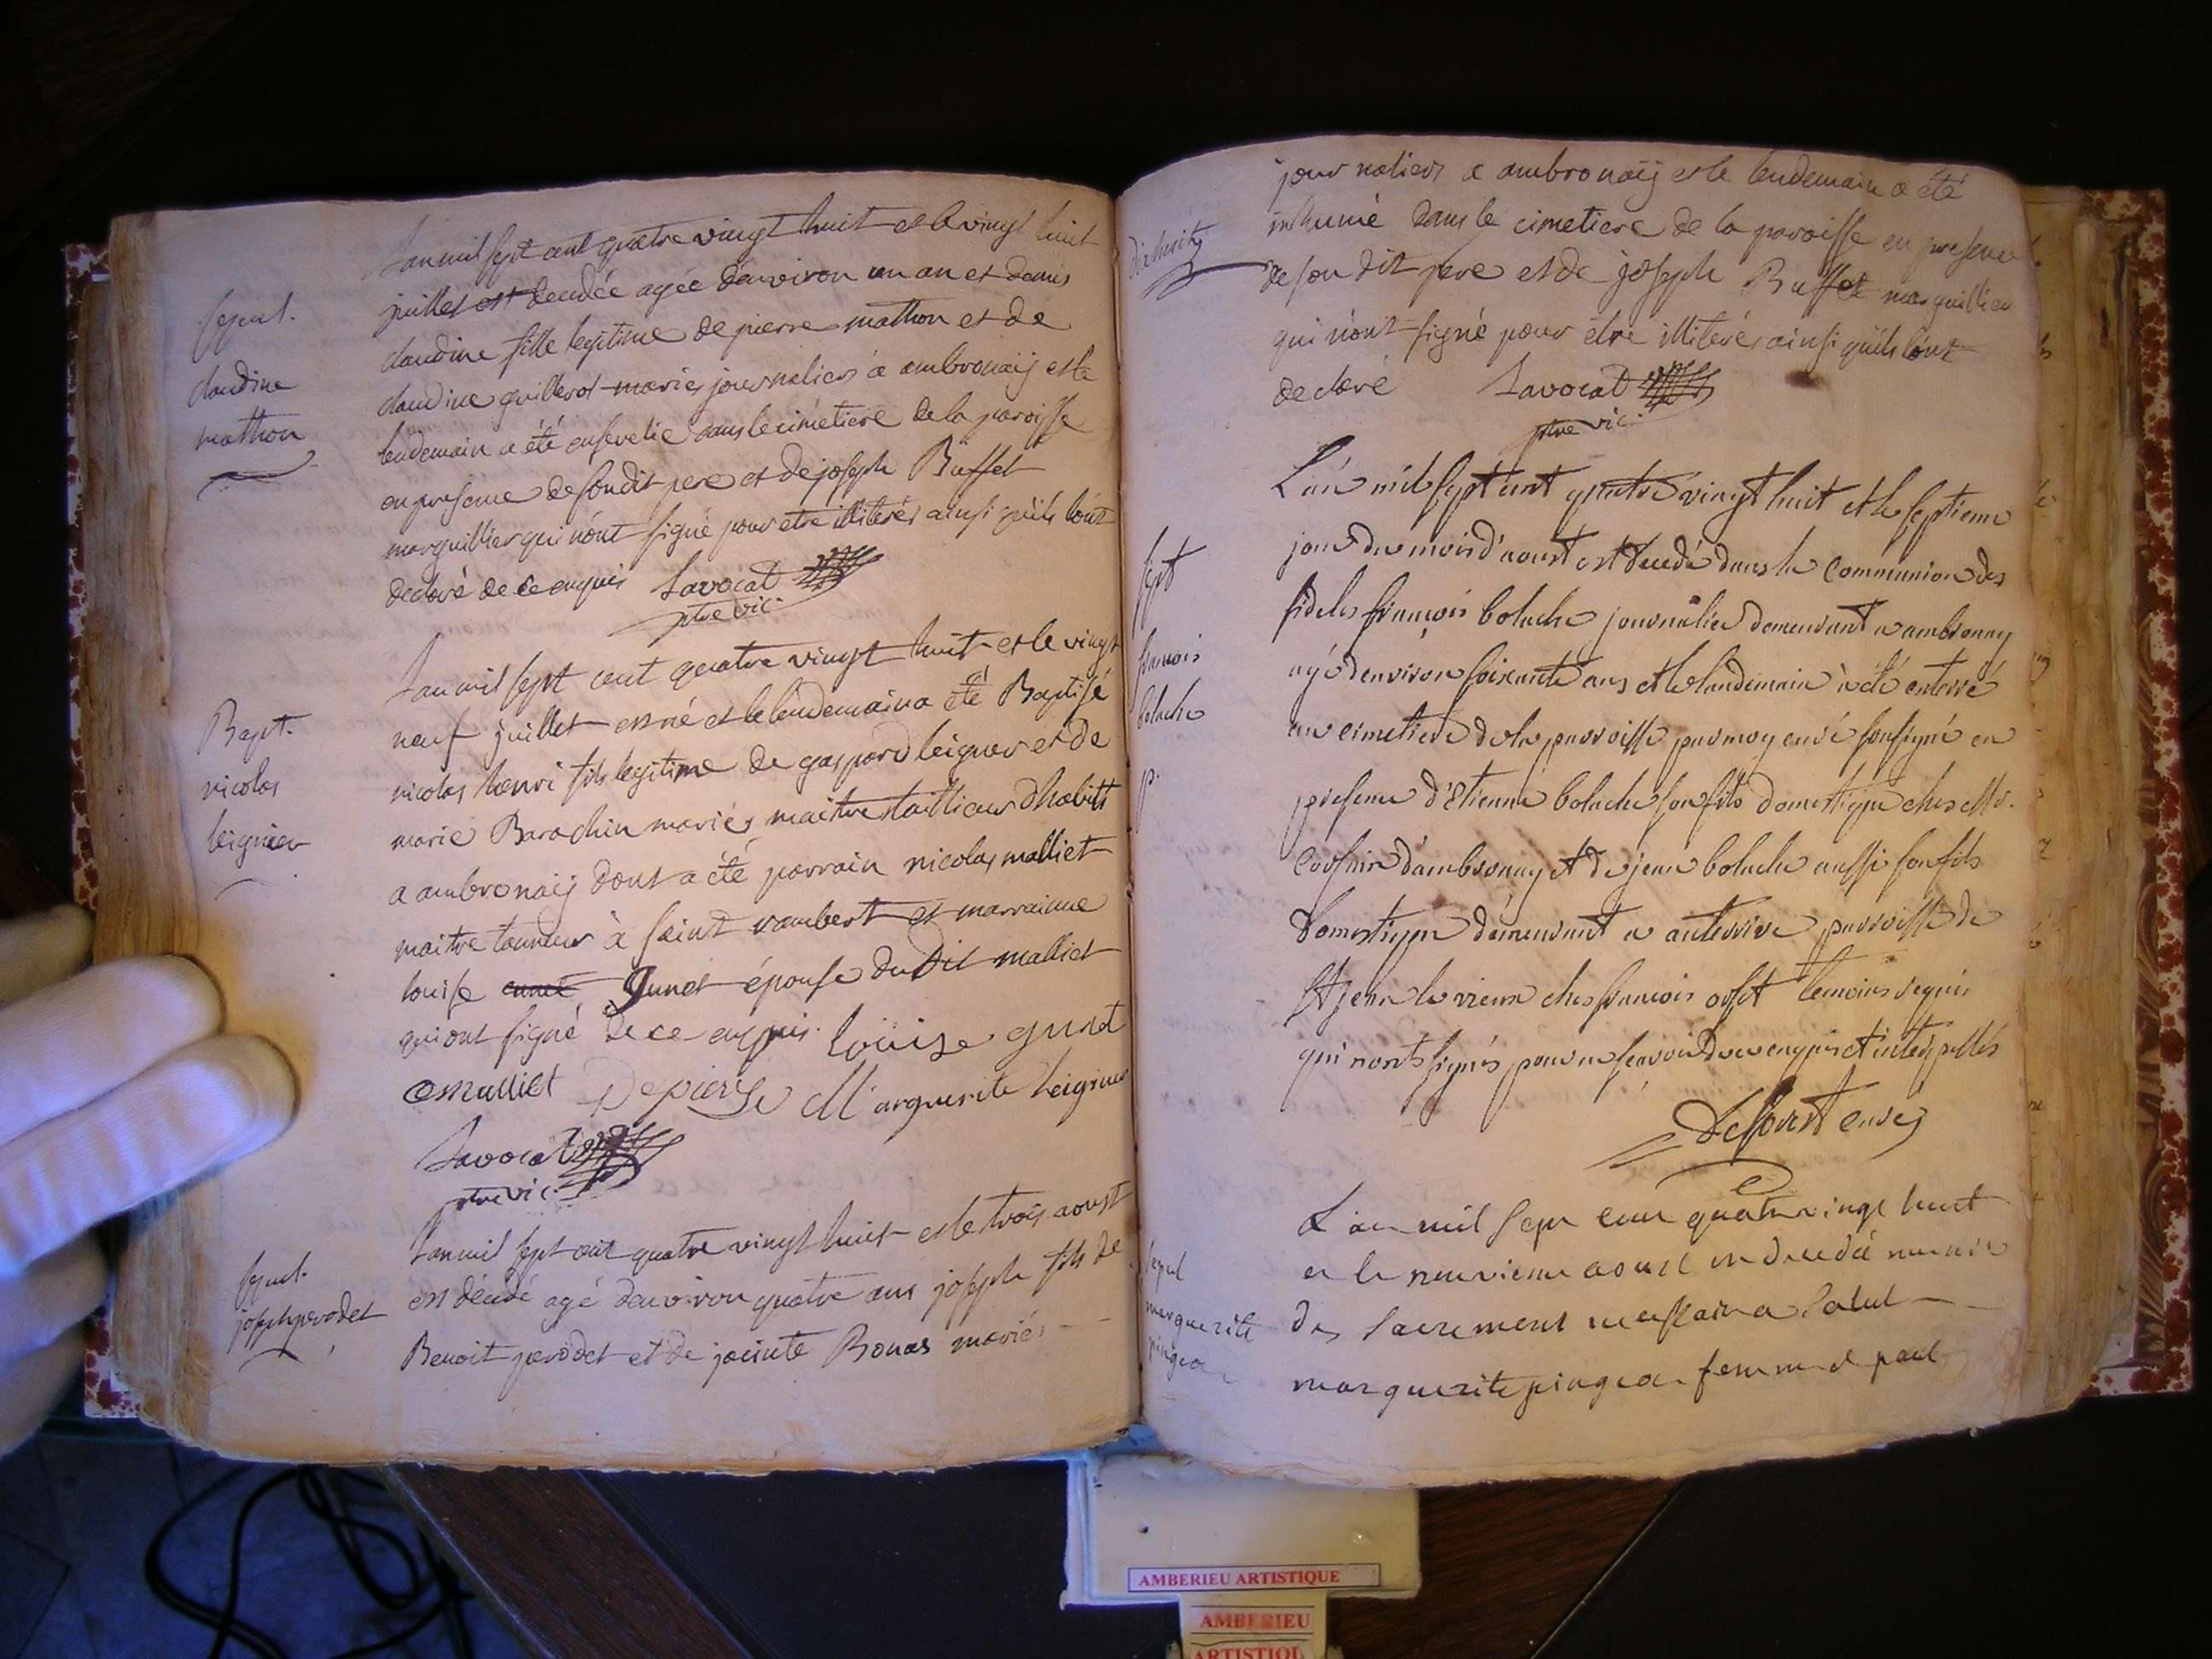 Sepul.
claudine
mathon
Lan mil sept cent quatre vingt huit et le vingt huit
juillet est decedée agée denviron un an et demis
claudine fille legitime de pierre mathon et de
claudine guillerot mariés journaliers à ambronaÿ et le
lendemain a été ensevelie dans le cimetiere de la paroisse
en presence de son dit pere et de joseph Buffet
marguillier qui n'ont signé pour etre illiterés ainsi qu'ils l'ont
declaré de ce enquis Lavocat
ptre vic.
Bapt.
nicolas
leignier
Lan mil sept cent quatre vingt huit et le vingt
neuf juillet est né et le lendemain a été Baptisé
nicolas henri fils legitime de gaspard leigner et de
marie Barachin mariés maitre tailleur dhabitt
a ambronaÿ dont a été parrain nicolas malliet
maitre tanneur à saint rambert et marraine
louise gunet épouse du dit malliet
qui ont signé de ce enquis. Louise gunet
Malliet Depierre Marguerite Leignier
Lavocat
ptre vic.
Sepul.
joseph perodet
Lan mil sept cent quatre vingt huit et le trois aoust
est décédé agé denviron quatre ans joseph fils de
Benoit perodet et de jacinte Bonas mariés
journaliers a ambronaÿ et le lendemain a été
dix huit
inhumé dans le cimetiere de la paroisse en presence
de son dit pere et de joseph Buffet marguillier
qui n'ont signé pour etre illiterés ainsi qu'ils l'ont
declaré Lavocat
ptre vic.
sept
francois
boluche
p.
L'an mil sept cent quatre vingt huit et le septieme
jour du mois d'aoust est decedé dans la Communion des
fideles françois boluche journalier demeurant a ambronay
agé denviron soixante ans et le landemain à été enterré
au cimetiere de la parroisse par moy curé soussigné en
presence d'Etienne boluche son fils domestique ches Mr.
d'ambronay et de jean boluche aussi son fils
domestique demeurant a auterive parroisse de
St jean le vieux ches francois temoins requis
qui n'ont signés pour ne scavoir de ce enquis et interpellés
curé
Sepul
marguerite
pingeon
L'an mil sept cent quatre vingt huit
et le neuvieme aoust est decedée munie
des sacrement a Salut
marguerite pingeon femme de paul
AMBERIEU ARTISTIQUE
AMBERIEU
ARTISTIQUE